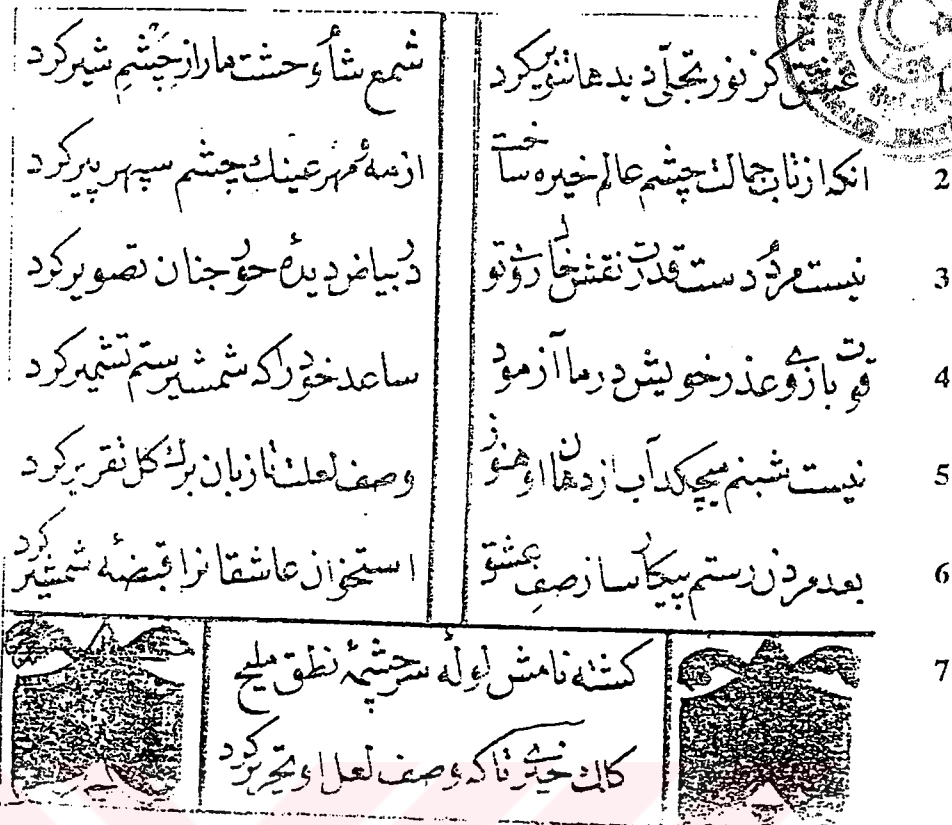 1 کز نور تجلّی دیدها تنویر کرد شمع وحشت مارا از چشم شیر کرد
2 انکه از تاب جمالت چشم عالم خیره ساخت از مه و مهر عینك چشم سپهر پیر کرد
3 نیست دست قدرت نقش تو در بیاض دیدۀ حور جنان تصویر کرد
4 قوت بازوی عذر خویش در ما آزمود ساعد خود را که شمشیر ستم تشمیر کرد
5 نیست شبنم میچکد آب از دهان او هنوز وصف لعلت تا زبان برك كل تقریر کرد
6 بعد مردن رستم پیکار ساز صف عشق استخوان عاشقانرا قبضۀ شمشیر کرد
7 کشته نامش لولۀ سرچشمۀ نطق ملیح
کلك خیری تا که وصف لعل او تحریر کرد